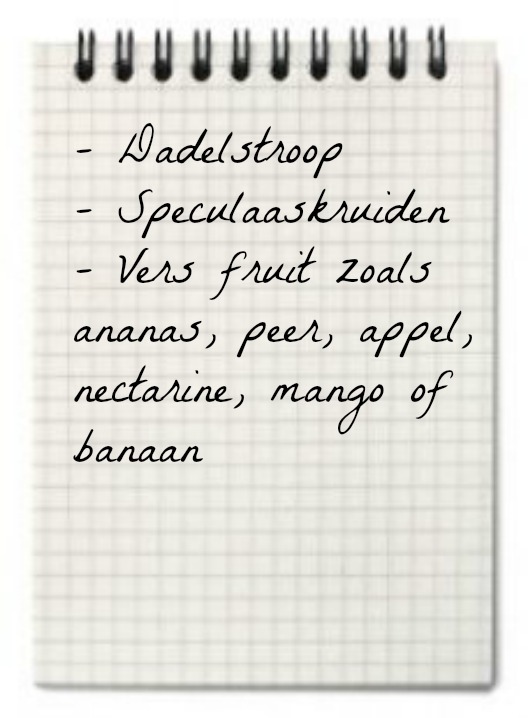 - Dadelstroop
- Speculaaskruiden
- Vers fruit zoals
ananas, peer, appel,
nectarine, mango of
banaan